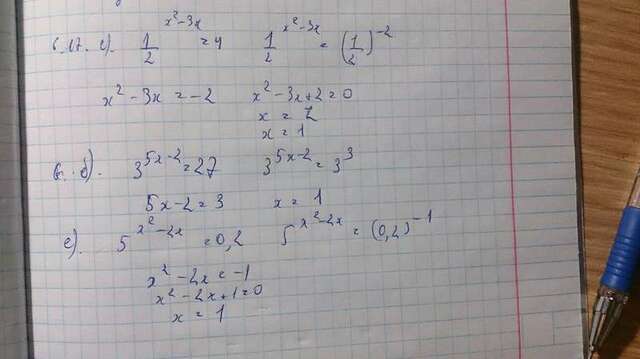 6.17. г). 1/2^(x²-3x) = 4 1/2^(x²-3x) = (1/2)^-2
x² - 3x = -2 x² - 3x + 2 = 0
x = 2
x = 1
б). 3^(5x-2) = 27 3^(5x-2) = 3^3
5x - 2 = 3 x = 1
е). 5^(x²-2x) = 0,2 5^(x²-2x) = (0,2)^-1
x² - 2x = -1
x² - 2x + 1 = 0
x = 1